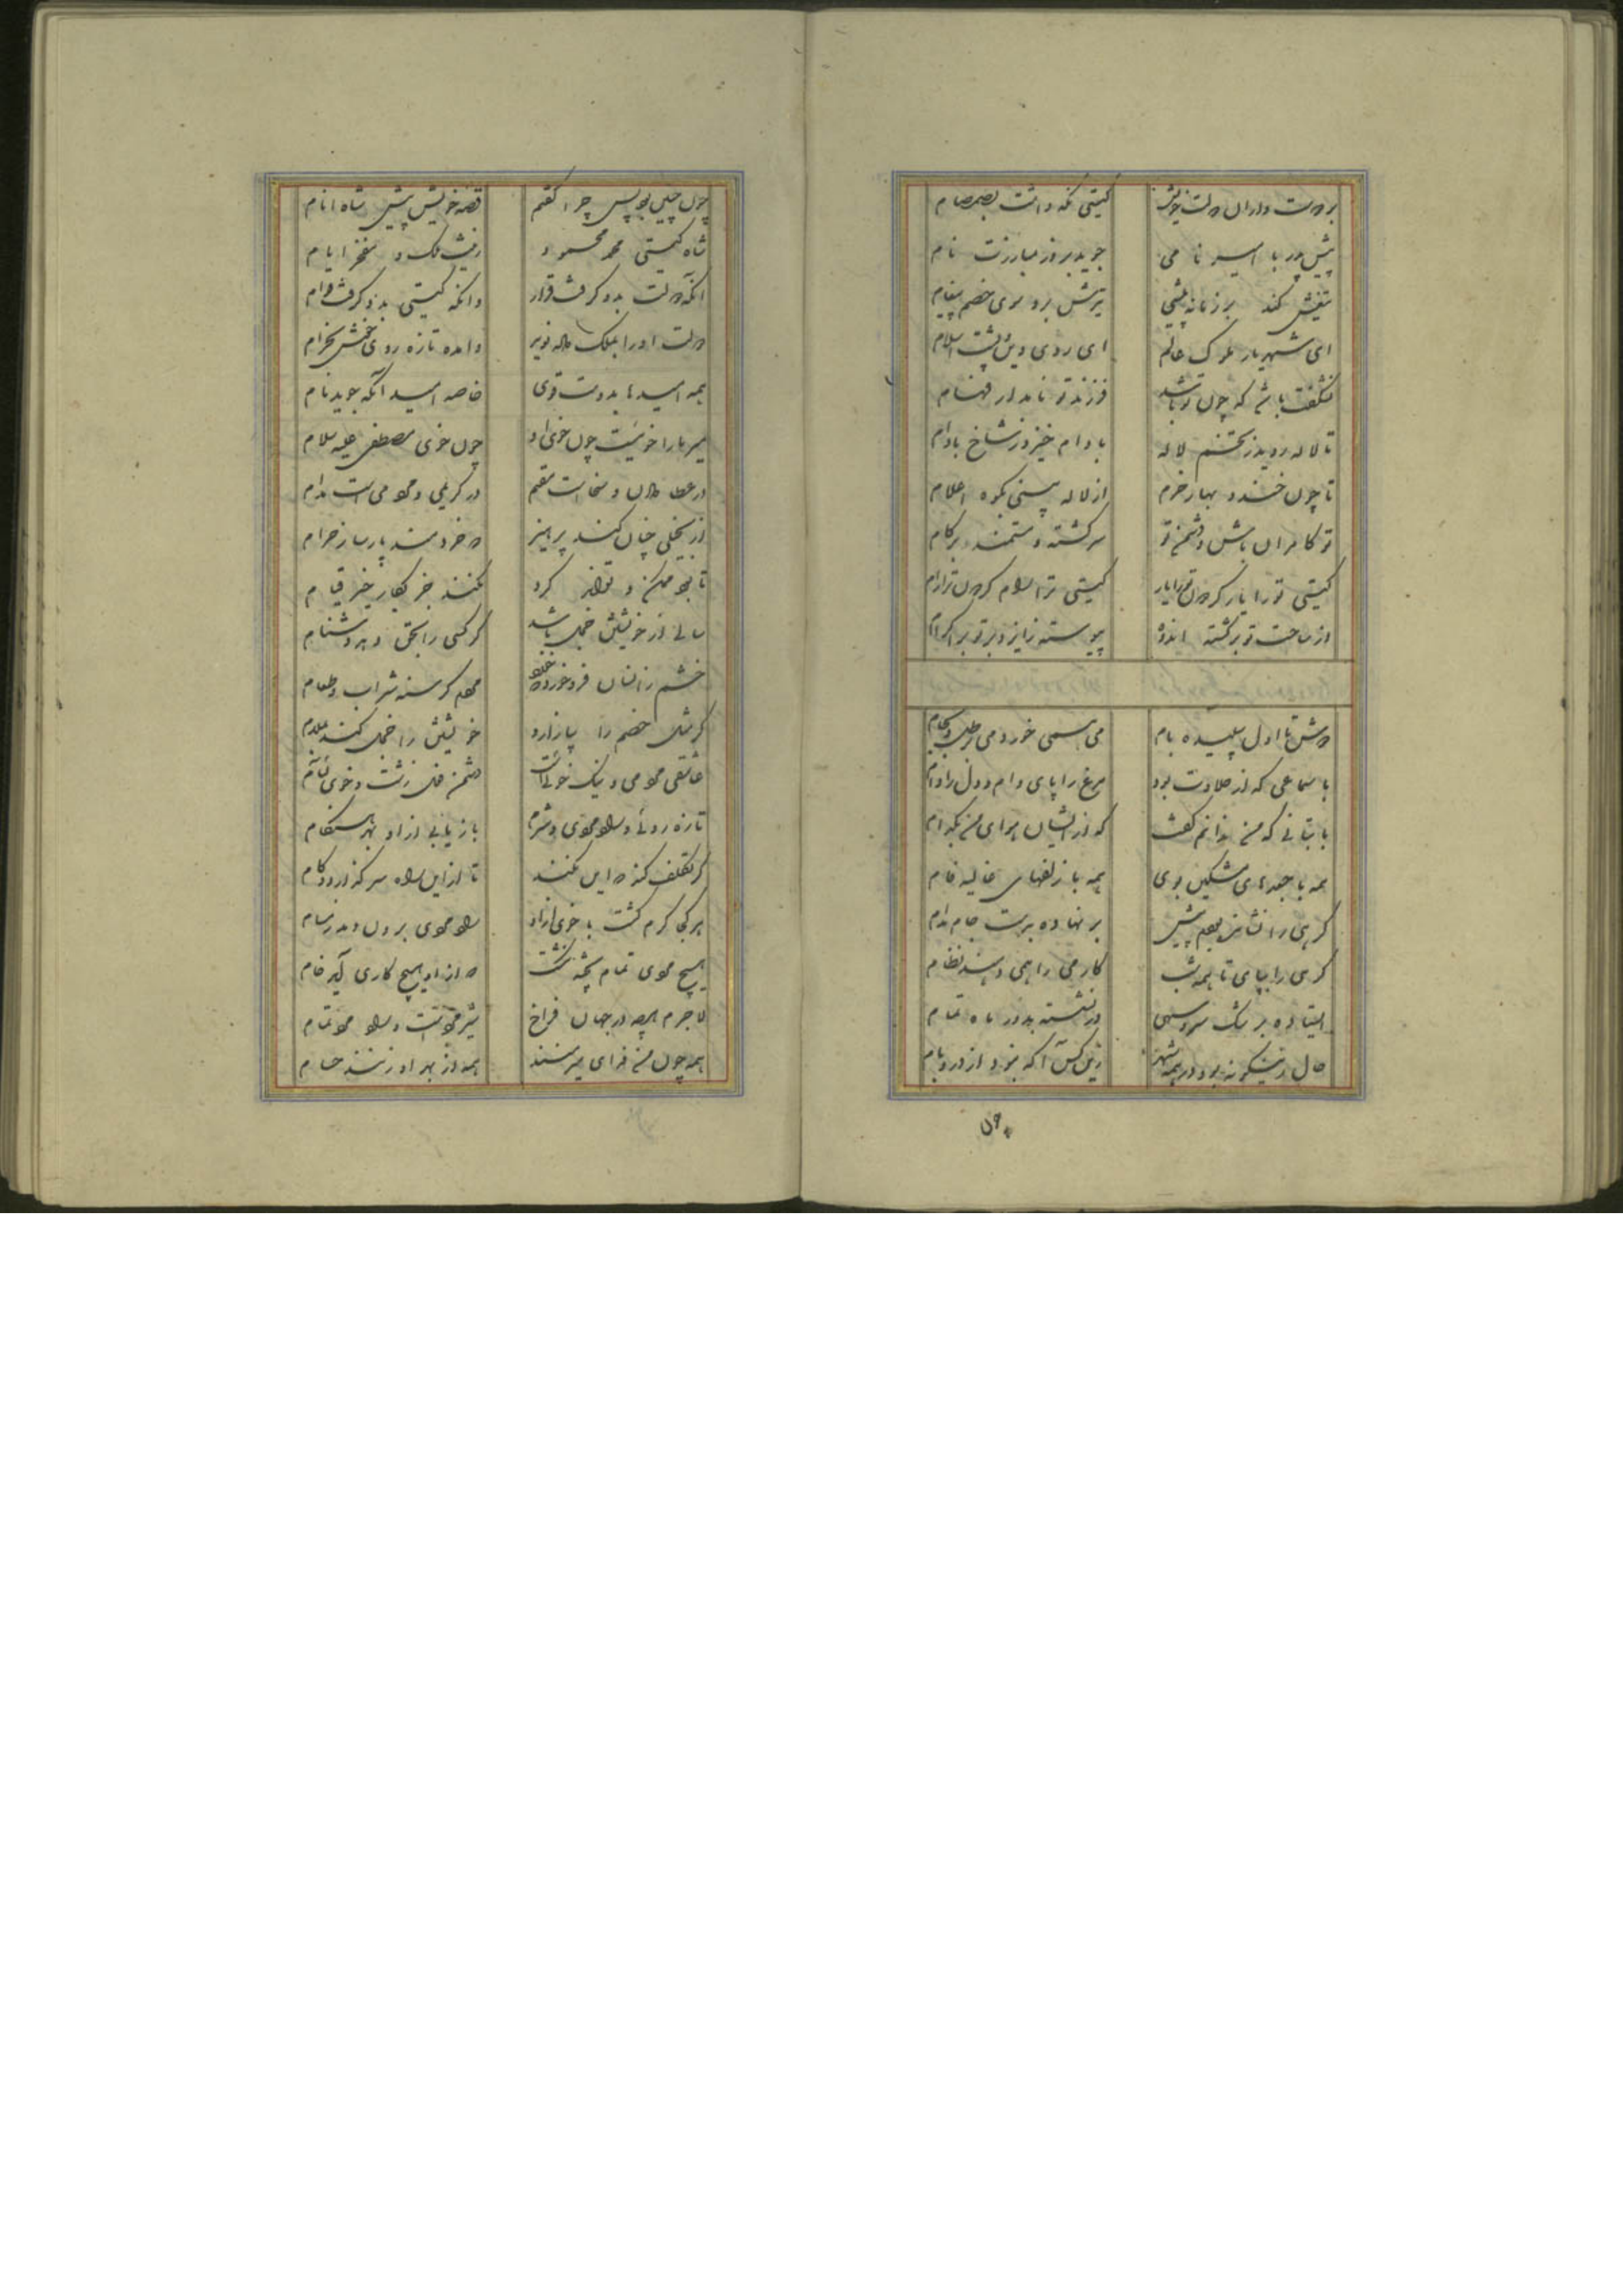 بر دوست داران دولت خویش گیتی نگه داشت بصمصام
پیش پدر با امیر نامی جوید بروز مبارزت نام
تیغش کند بر زمانه پیشی تیرش برد سوی خصم پیغام
ای شهریار ملوک عالم ای روی دین پشت اسلام
نشگفت باشد که چون تو باشد فرزند تو نامدار فهام
تا لاله روید ز تخم لاله بادام خیزد ز شاخ بادام
تا چون خندد بهار خرم از لاله بینی بکوه اعلام
تو کامران باش و دشمن تو سرگشته و مستمند
گیتی تو را یار گردون تو را یار گیتی ترا رام گردون ترا رام
از ساحت تو برگشته اندوه پیوسته ز ایزد بر تو بر اکرام
دوش تا اول سپیده بام می همی خورد می برطل و بجام
با سماعی که از حلاوت بود مرغ را پای دام و دل را دام
با بتانی که من ندانم گفت که از ایشان هوای من بکدام
همه با جعدهای مشکین بوی همه با زلفهای غالیه فام
گرهی را نشانده بودم پیش بر نهاده بدست جام مدام
گرهی را بپای تا همه شب کار می را همی دهند نظام
ایستاده بر یک سرو سهی ور نشسته بدور ماه تمام
حال ازینگونه بود در همه شهر زین کس آگه نبود از در و بام
چون چنین بود پس چرا گفتم قصه خویش پیش شاه انام
شاه گیتی محمد محمود زینت ملک و مفخر ایام
آنکه دولت بدو گرفت قرار وانکه گیتی بدو گرفت قوام
دولت او را بملک داده نوید وآمده تازه روی و خوش بخرام
همه امیدها بدوست قوی خاصه امید آنکه جوید نام
میر ما را خوئیست چون خوی او چون خوی مصطفی علیه سلام
در عطا دادن و سخاست مقیم در کریمی و مردمی است مدام
از بخیلی چنان کند پرهیز که خردمند پارسا ز حرام
تا بود ممکن و تواند کرد نکند جز بکار خیر قیام
سالی از خویشتن خجل باشد گر کسی را بحق دهد دشنام
خشم زانسان فرو خورد که خورد مردم گرسنه شراب و طعام
گر بمثل خصم را بیازارد خویشتن را خجل کند بملام
عاشقی مردمی و نیک خوئی است دشمن فعل زشت و خوی لئام
تازه روئی و راد مردی و شرم باز یابی از او بهر هنگام
گر تکلف کند که این نکند تا ازین راه سر گذارد و کام
هر کجا گرم گشت با خوی آزاد راد مردی برون دمد ز مسام
هیچ مردی تمام پخته نگشت که از او هیچ کاری آید خام
لاجرم همه در جهان فراخ شیر مردیست و راد مرد تمام
همه چون من فدای میر منند همه از بهر او زنند حسام